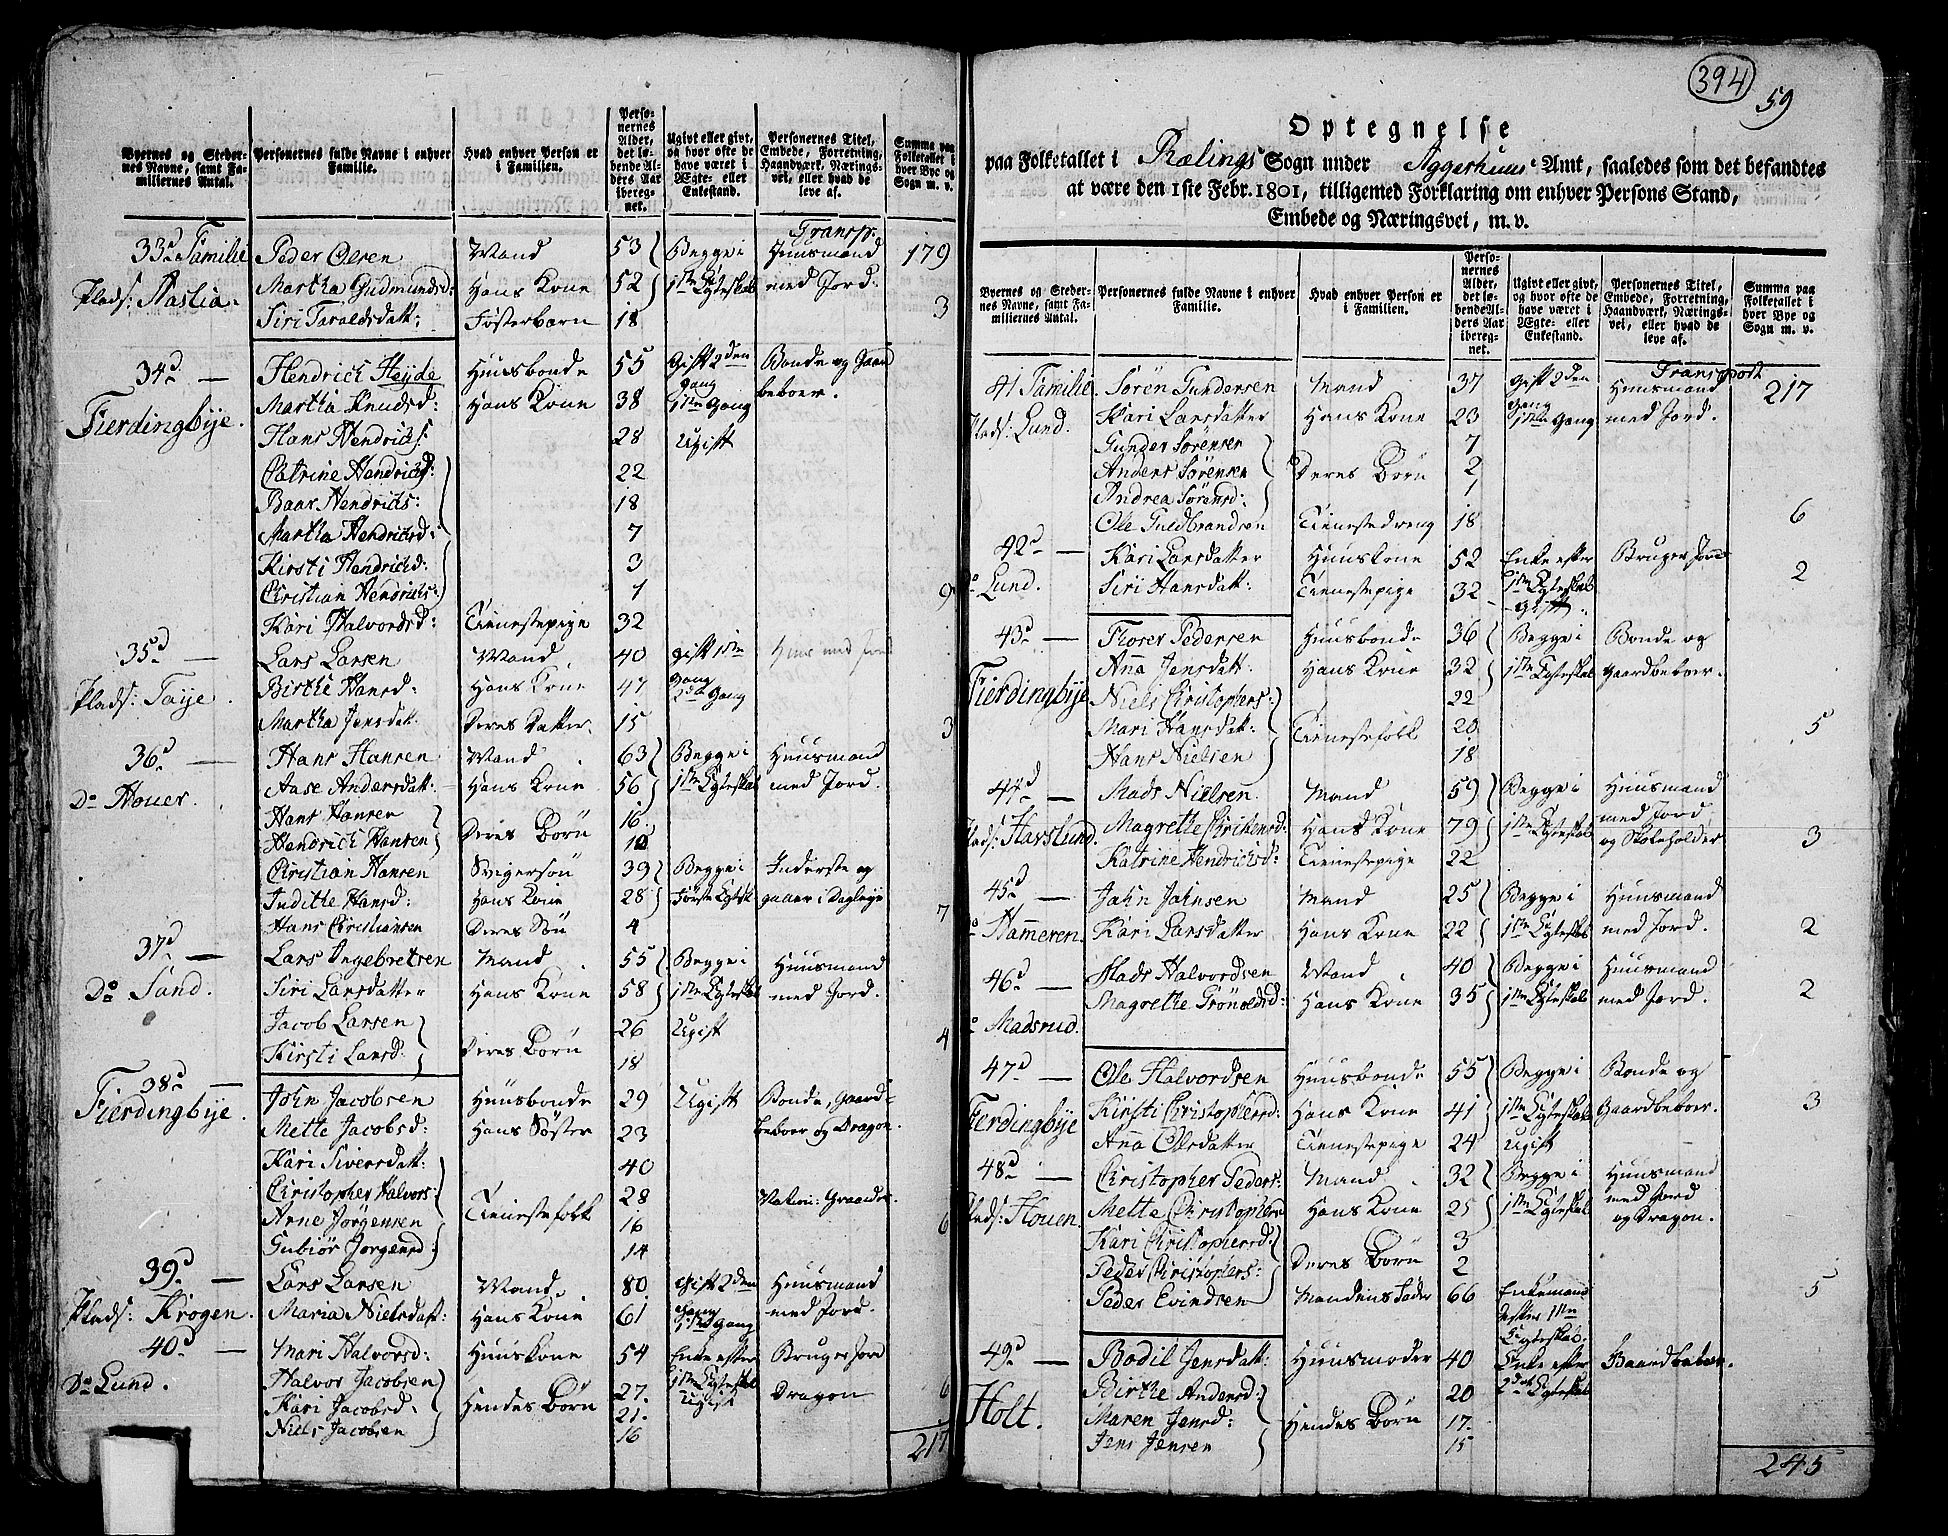 Byernes og Steder-
nes Navne, samt Fa-
miliernes Antal.
Personernes fulde Navne i enhver
Familie.
Hvad enhver Person er
i Familien.
Perso-
nernes
Alder,
det lø-
bende Al-
ders Aar
ibereg-
net.
Ugivt eller givt,
og hvor ofte de
have været i
Ægte- eller
Enkestand.
Personernes Titel,
Embede, Forretning,
Haandværk, Nærings-
vei, eller hvad de
leve af.
Summa paa
Folketallet i
hver Bye og
Sogn m. v.
Transp.
33d Familie Peder Olsen Mand 53 Begge i Huusmand 179
Plads: Aastia. Martha Gudmundsd: Hans Kone 52 1ste Egteskab med Jord.
Siri Taraldsdatt: Fosterbarn 18 3
34d — Hendrich Heyde Huusbonde 55 Gift 2den Gang Bonde og Gaard
Fierdingbye. Martha Knudsd: Hans Kone 38 1ste Gang beboer.
Hans Hendrichs: 28 Ugift
Catrine Hendrichsd: 22
Baar Hendrichs: 18
Martha Hendrichsd: 7
Kirsti Hendrichsd: 3
Christian Hendrichs: 1 9
Kari Halvordsd: Tienestepige 32
35d — Lars Larsen Mand 40 gift 1ste Gang Huus med Jord
Plads: Taije. Birthe Hansd: Hans Kone 47 2den Gang
Martha Jensdatt: Deres Datter 15 3
36d — Hans Hansen Mand 63 Begge i Huusmand
Do Houer. Aase Andersdatt: Hans Kone 56 1ste Egteskab med Jord.
Hans Hansen 16
Hendrich Hansen Deres Børn 10
Christian Hansen Svigersøn 39 Begge i Inderste og
Judithe Hansd: Hans Kone 28 Første Egtsk gaaer i Dagleye
Hans Christiansen Deres Søn 4 7
37d — Lars Ingebretsen Mand 55 Begge i Huusmand
Do Sand. Siri Larsdatter Hans Kone 58 1ste Egteskab med Jord.
Jacob Larsen 26 Ugift
Kirsti Larsd: Deres Børn 18 4
38d — John Jacobsen Huusbonde 29 Ugift Bonde, Gaard-
Fierdingbije. Mette Jacobsd: Hans Søster 23 beboer og Dragon.
Kari Siversdatt: 40
Christopher Halvors: Tienestefolk 28
Arne Jørgensen 16 6
Gubiør Jørgensd: 14
39d — Lars Larsen Mand 80 Gift 2den Gang Huusmand
Plads: Krogen. Maria Nielsdatt: Hans Kone 61 1ste Gang med Jord.
40d — Mari Halvorsd: Huuskone 54 Enke efter Bruger Jord
Do Lund. Halvor Jacobsen 27. 1ste Egteskab Ugift Dragon 6
Kari Jacobsd: Hendes Børn 21.
Niels Jacobsen 16
217
394
59
Optegnelse
paa Folketallet i Rælings Sogn under Aggershuus Amt, saaledes som det befandtes
at være den 1ste Febr. 1801, tilligemed Forklaring om enhver Persons Stand,
Embede og Næringsvei, m. v.
Byernes og Steder-
nes Navne, samt Fa-
miliernes Antal.
Personernes fulde Navne i enhver
Familie.
Hvad enhver Person er
i Familien.
Perso-
nernes
Alder,
det lø-
bende Al-
ders Aar
ibereg-
net.
Ugivt eller givt,
og hvor ofte de
have været i
Ægte- eller
Enkestand.
Personernes Titel,
Embede, Forretning,
Haandværk, Nærings-
vei, eller hvad de
leve af.
Summa paa
Folketallet i
hver Bye og
Sogn m. v.
Transport
41 Familie. Søren Gundersen Mand 37 Gift 2den Gang Huusmand 217
Plads: Lund. Kari Larsdatter Hans Kone 23 1ste Gang med Jord.
Gunder Sørensen 7
Anders Sørensen Deres Børn 2
Andrea Sørensd: 1
Ole Guldbrandsen Tienestedreng 18 6
42d — Kari Larsdatter Huuskone 52 Enke efter Bruger Jord
Do Lund. Siri Hansdatt: Tienestepige 32 1ste Egteskab Ugift. 2
43d — Troser Pedersen Huusbonde 36 Begge i Bonde og
Fierdingbije Anna Jensdatt: Hans Kone 32 1ste Egteskab Gaardbeboer.
Niels Christophers: 22
Mari Hansdatt: Tienestefolk 20 5
Hans Nielsen 18
44d — Mads Nielsen Mand 59 Begge i Huusmand
Plads: Havslund. Magrethe Christensd: Hans Kone 79 1ste Egteskab med Jord og Skoleholder 3
Katrine Hendrichsd: Tienestepige 22
45d — John Johnsen Mand 25 Begge i Huusmand
Do Hameren. Kari Larsdatter Hans Kone 22 1ste Egteskab med Jord. 2
46d — Mads Halvordsen Mand 40 Begge i Huusmand
Do Madsrud. Magrethe Trondsd: Hans Kone 35 1ste Egteskab med Jord. 2
47d — Ole Halvordsen Huusbonde 55 Begge i Bonde og
Fierdingbije Kirsti Christophersd: Hans Kone 41 1ste Egteskab Gaardbeboer. 3
Anna Olsdatter Tienestepige 24 Ugift
48d — Christopher Peders: Mand 32 Begge i Huusmand
Plads: Houen. Mette Christophersd: Hans Kone 25 1ste Egteskab med Jord og Dragon.
Kari Christophersd: 3
Peder Christophers: Deres Børn 2
Peder Evindsen Mandens Fader 66 Enkemand efter 1ste Egteskab. 5
49d — Bodil Jensdatt: Huusmoder 40 Enke efter Gaardbeboer.
Holt. Birthe Andersd: 20 2det Egteskab
Maren Jensd: Hendes Børn 17.
Jens Jensen 15
245